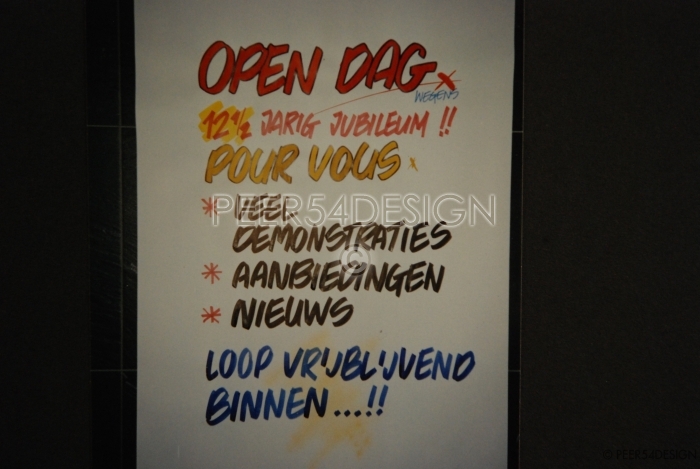 OPEN DAG
WEGENS
12 1/2 JARIG JUBILEUM !!
POUR VOUS
* VEEL
DEMONSTRATIES
* AANBIEDINGEN
* NIEUWS
LOOP VRIJBLIJVEND
BINNEN...!!
PEER54DESIGN
©
© PEER54DESIGN